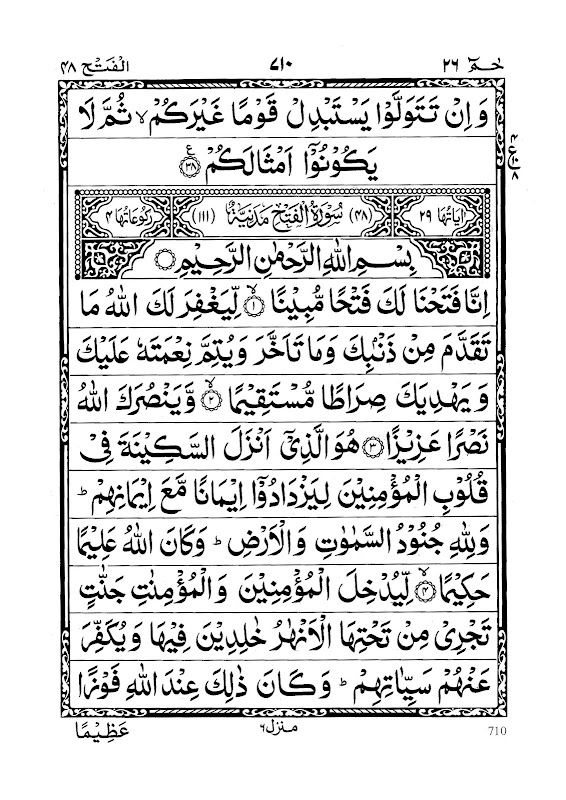 الفتح ۴۸ ۷۱۰ حٰمٓ ۲۶
وَ اِنْ تَتَوَلَّوْا یَسْتَبْدِلْ قَوْمًا غَیْرَكُمْ ۙ ثُمَّ لَا
یَكُوْنُوْۤا اَمْثَالَكُمْ ۠ ﴿۳۸﴾
۴ ع ۸
اٰیَاتُهَا ۲۹ ﴿۴۸﴾ سُوْرَةُ الْفَتْحِ مَدَنِیَّةٌ ﴿۱۱۱﴾ رُكُوْعَاتُهَا ۴
بِسْمِ اللهِ الرَّحْمٰنِ الرَّحِیْمِ
اِنَّا فَتَحْنَا لَكَ فَتْحًا مُّبِیْنًا ۙ ﴿۱﴾ لِّیَغْفِرَ لَكَ اللهُ مَا
تَقَدَّمَ مِنْ ذَنْۢبِكَ وَ مَا تَاَخَّرَ وَ یُتِمَّ نِعْمَتَهٗ عَلَیْكَ
وَ یَهْدِیَكَ صِرَاطًا مُّسْتَقِیْمًا ۙ ﴿۲﴾ وَّ یَنْصُرَكَ اللهُ
نَصْرًا عَزِیْزًا ﴿۳﴾ هُوَ الَّذِیْۤ اَنْزَلَ السَّكِیْنَةَ فِیْ
قُلُوْبِ الْمُؤْمِنِیْنَ لِیَزْدَادُوْۤا اِیْمَانًا مَّعَ اِیْمَانِهِمْ ؕ
وَ لِلّٰهِ جُنُوْدُ السَّمٰوٰتِ وَ الْاَرْضِ ؕ وَ كَانَ اللهُ عَلِیْمًا
حَكِیْمًا ۙ ﴿۴﴾ لِّیُدْخِلَ الْمُؤْمِنِیْنَ وَ الْمُؤْمِنٰتِ جَنّٰتٍ
تَجْرِیْ مِنْ تَحْتِهَا الْاَنْهٰرُ خٰلِدِیْنَ فِیْهَا وَ یُكَفِّرَ
عَنْهُمْ سَیِّاٰتِهِمْ ؕ وَ كَانَ ذٰلِكَ عِنْدَ اللهِ فَوْزًا
عَظِیْمًا منزل ۶ 710